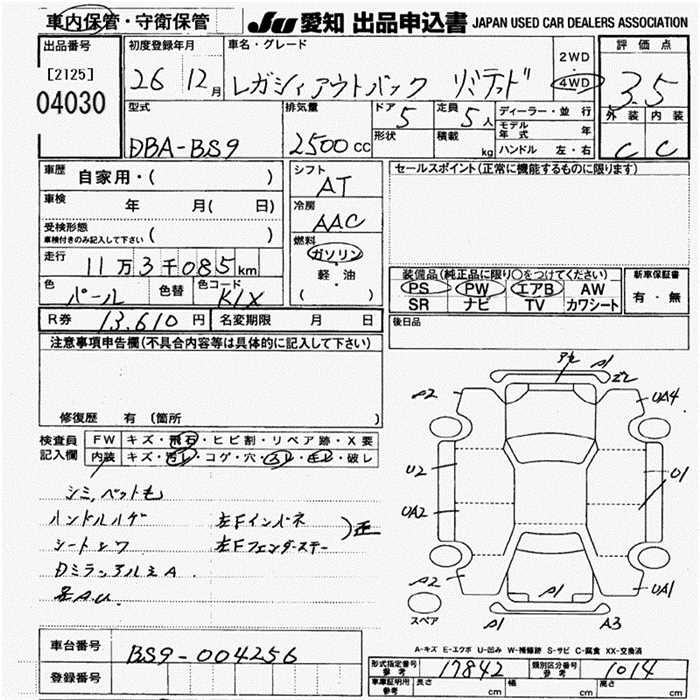 車内保管・守衛保管 JU 愛知 出品申込書 JAPAN USED CAR DEALERS ASSOCIATION
出品番号 [2125] 04030
初度登録年月 26 12月
車名・グレード レガシィアウトバック リミテッド
2WD 4WD
評価点 3.5
外装 C 内装 C
型式 DBA-BS9
排気量 2500cc
ドア 5 形状
定員 5人 積載 kg
ディーラー・並行
モデル年式 年
ハンドル 左・右
車歴 自家用・( )
車検 年 月( 日)
受検形態 車検付きのみ記入して下さい ( )
走行 11万3千085km
色 パール 色替 色コード K1X
シフト AT
冷房 AAC
燃料 ガソリン・軽・油 ( )
セールスポイント(正常に機能するものに限ります)
装備品(純正品に限り○をつけてください)
PS PW エアB AW
SR ナビ TV カワシート
新車保証書 有・無
後日品
R券 13,610円 名変期限 月 日
注意事項申告欄(不具合内容等は具体的に記入して下さい)
修復歴 有 (箇所 )
検査員記入欄
FW キズ・飛石・ヒビ割・リペア跡・X要
内装 キズ・汚レ・コゲ・穴・スレ・モレ・破レ
シミ,ペット毛
ハンドルハゲ 左Fインパネ
シートシワ 左Fフェンダーステー
)正
DミラーアルミA
A2 A1 UA4
U2 U1
UA2
A2 A1 UA1
A1 A3
スペア
A-キズ E-エクボ U-凹み W-補修跡 S-サビ C-腐食 XX-交換済
車台番号 BS9-004256
登録番号
形式指定番号 参考 17842 類別区分番号 参考 1014
車庫証明用 参考 長さ cm 幅 cm 高さ cm